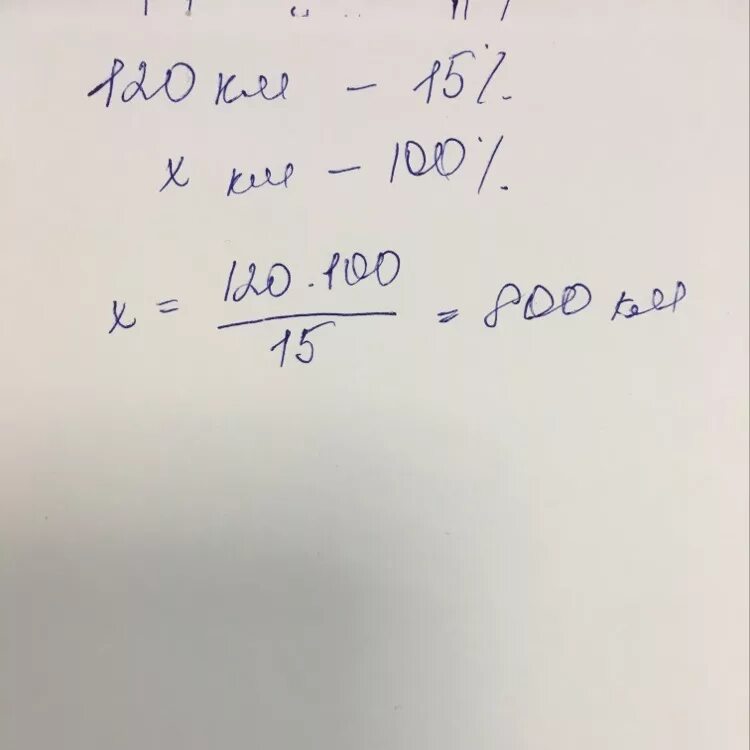 120 км - 15%.
x км - 100%.
x = 120 · 100 / 15 = 800 км